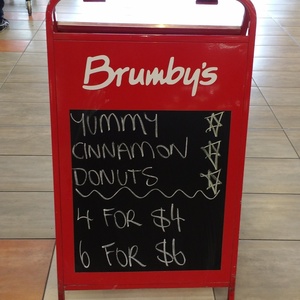 Brumby's
YUMMY
CINNAMON
DONUTS
4 FOR $4
6 FOR $6